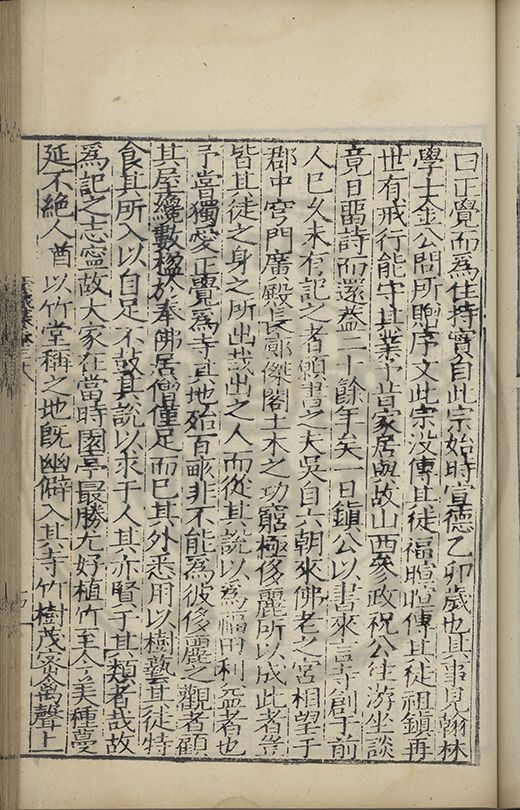 曰正覺而爲住持實自此宗始時宣德乙卯歲也其事見翰林
學士金公問所贈序文此宗没傳其徒福暄暄傳其徒祖鎮再
世有戒行能守其業予昔家居與故山西參政祝公往游坐談
竟日畱詩而還蓋二十餘年矣一日鎮公以書來言寺創于前
人巳乆未有記之者願書之夫吳自六朝來佛老之宮相望于
郡中穹門廣殿長廊傑閣土木之功窮極侈麗所以成此者豈
皆其徒之身之所出哉出之人而從其說以爲福田利益者也
予嘗獨愛正覺爲寺其地殆百畝非不能爲彼侈麗之觀者顧
其屋纔數楹於奉佛居僧僅足而巳其外悉用以樹藝其徒特
食其所入以自足不鼓其說以求于人其亦賢于其類者哉故
爲記之志寧故大家在當時園亭最勝尤好植竹至今美種蔓
延不絕人酋以竹堂稱之地旣幽僻入其寺竹樹茂密禽聲上